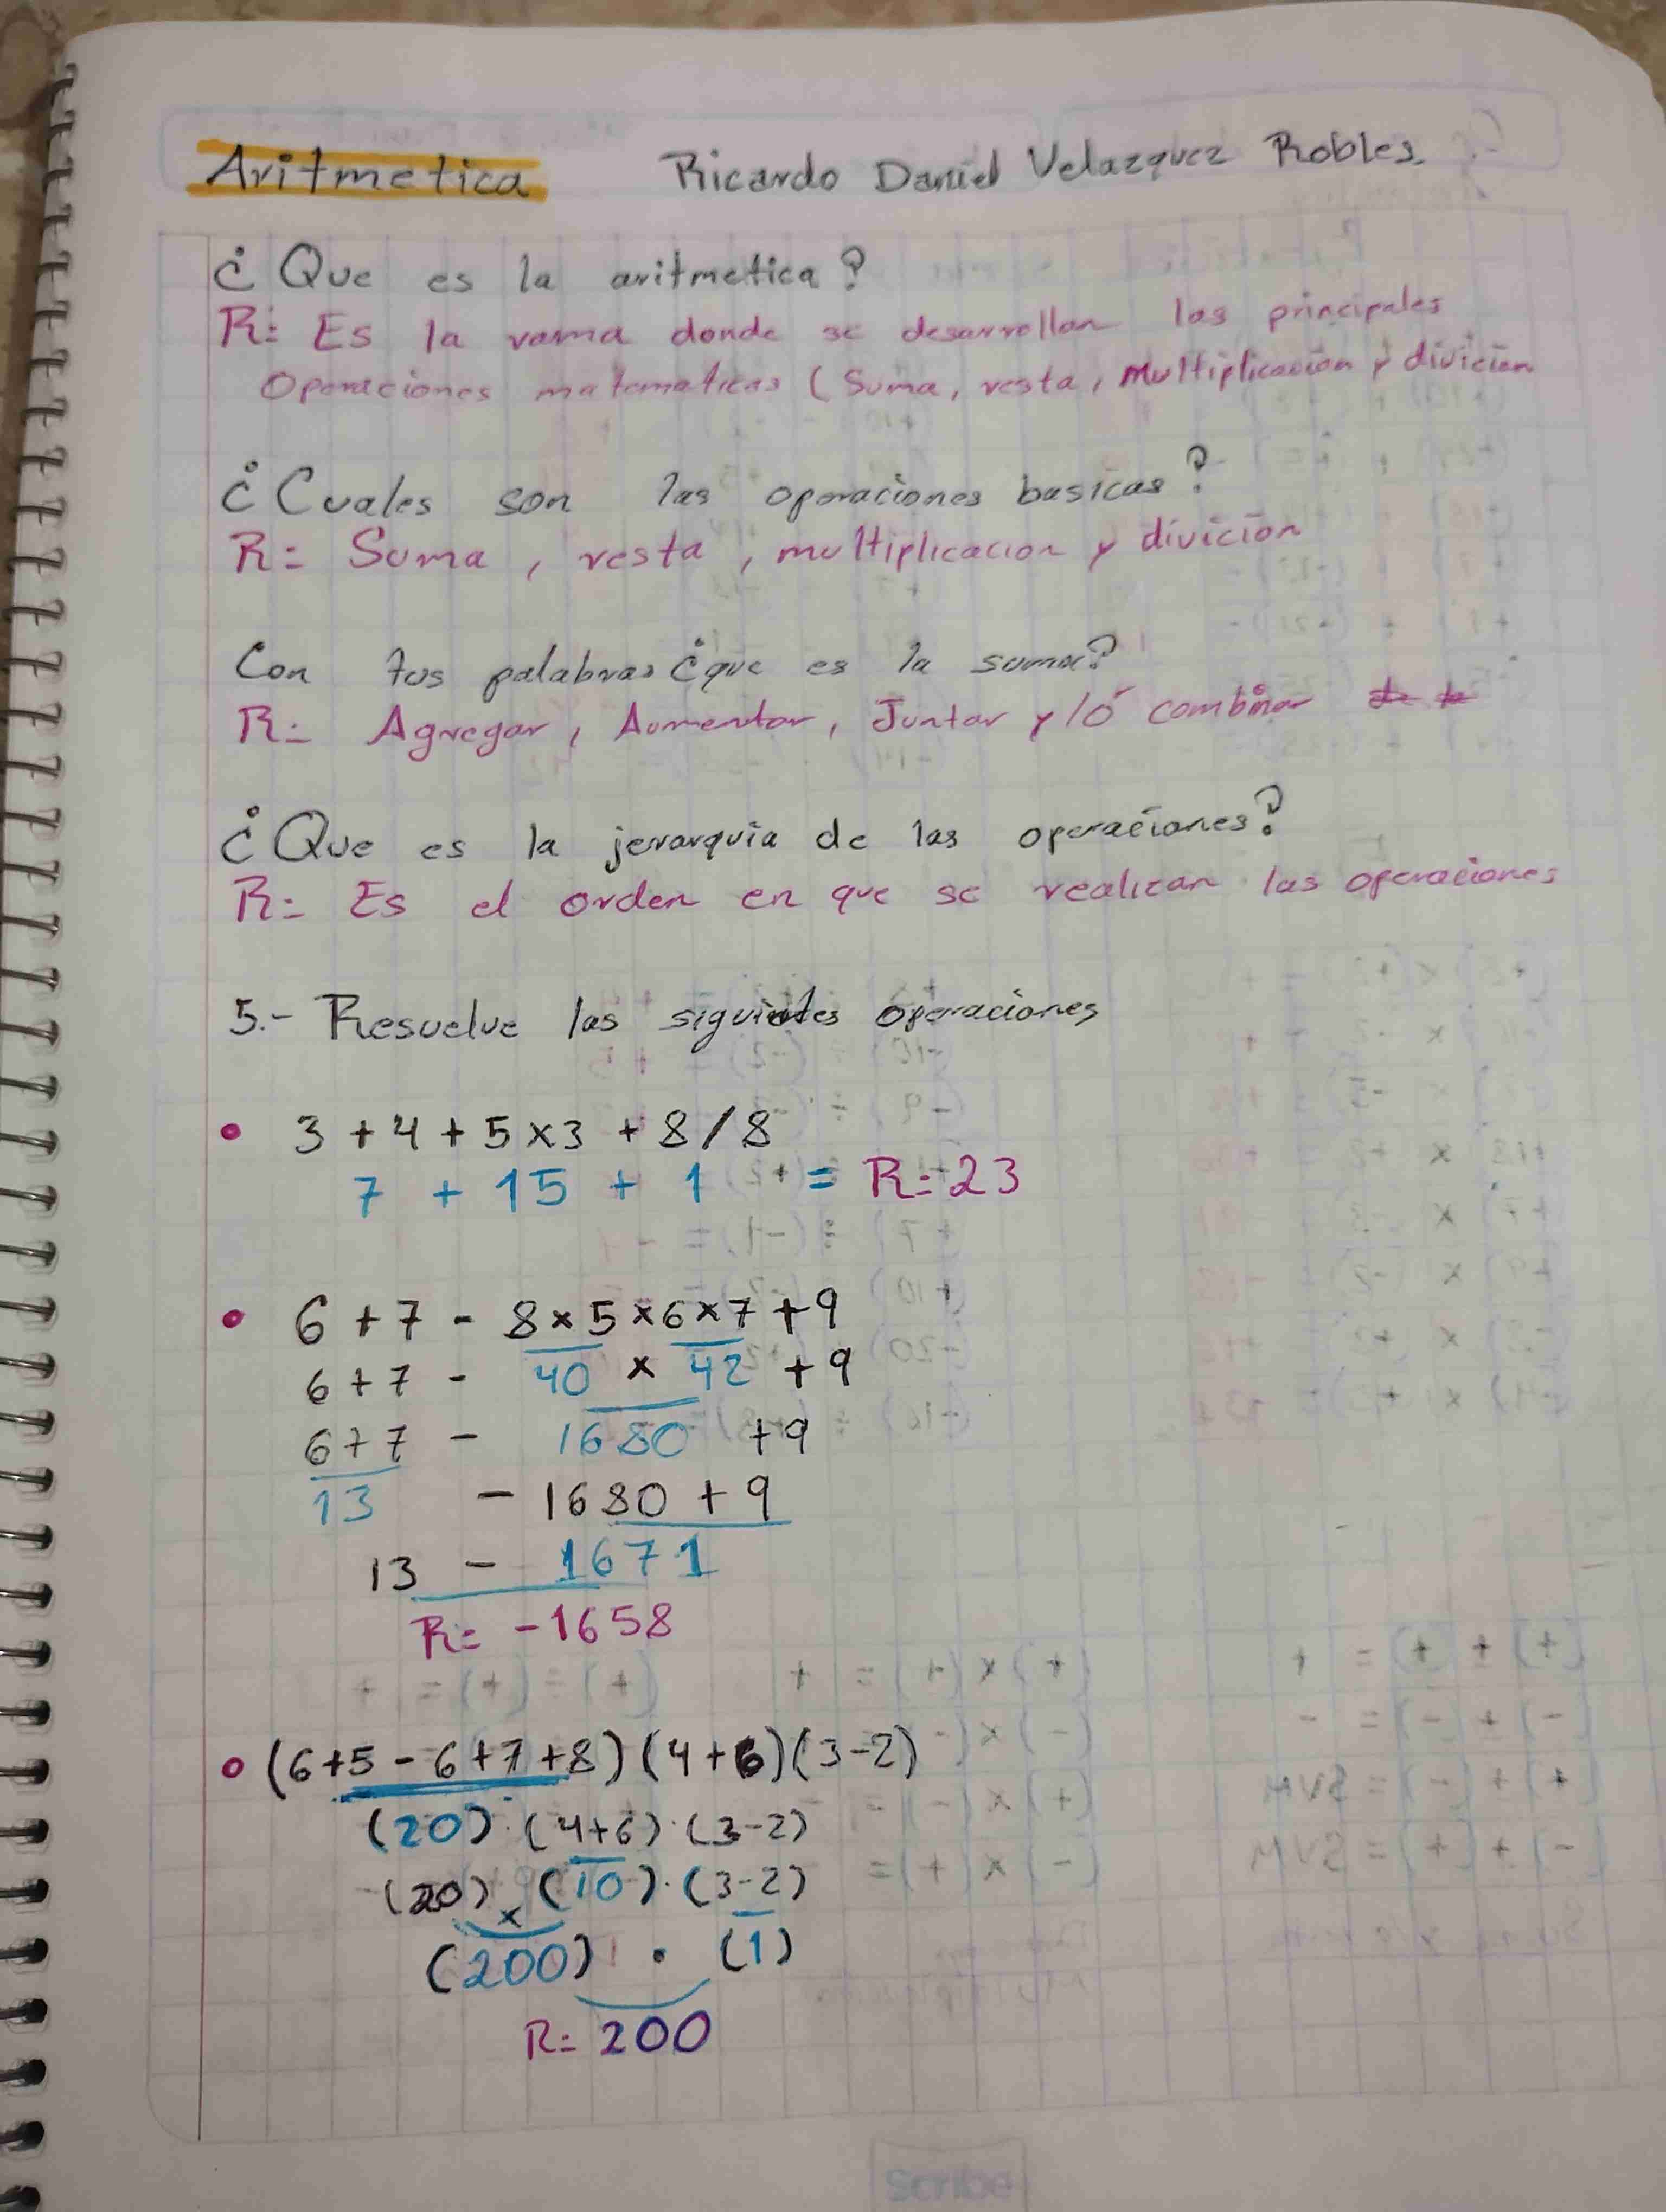 Aritmetica Ricardo Daniel Velazquez Robles.
¿Que es la aritmetica?
R: Es la rama donde se desarrollan las principales
Operaciones matematicas (Suma, resta, Multiplicacion y divicion
¿Cuales son las operaciones basicas?
R: Suma, resta, multiplicacion y divicion
Con tus palabras ¿que es la suma?
R: Agregar, Aumentar, Juntar y/ó combinar
¿Que es la jerarquia de las operaciones?
R: Es el orden en que se realizan las operaciones
5.- Resuelve las siguientes operaciones
• 3 + 4 + 5 x 3 + 8 / 8
7 + 15 + 1 = R: 23
• 6 + 7 - 8 x 5 x 6 x 7 + 9
6 + 7 - 40 x 42 + 9
6 + 7 - 1680 + 9
13 - 1680 + 9
13 - 1671
R: -1658
• (6+5-6+7+8)(4+6)(3-2)
(20)·(4+6)·(3-2)
(20) x (10)·(3-2)
(200) · (1)
R: 200
Scribe